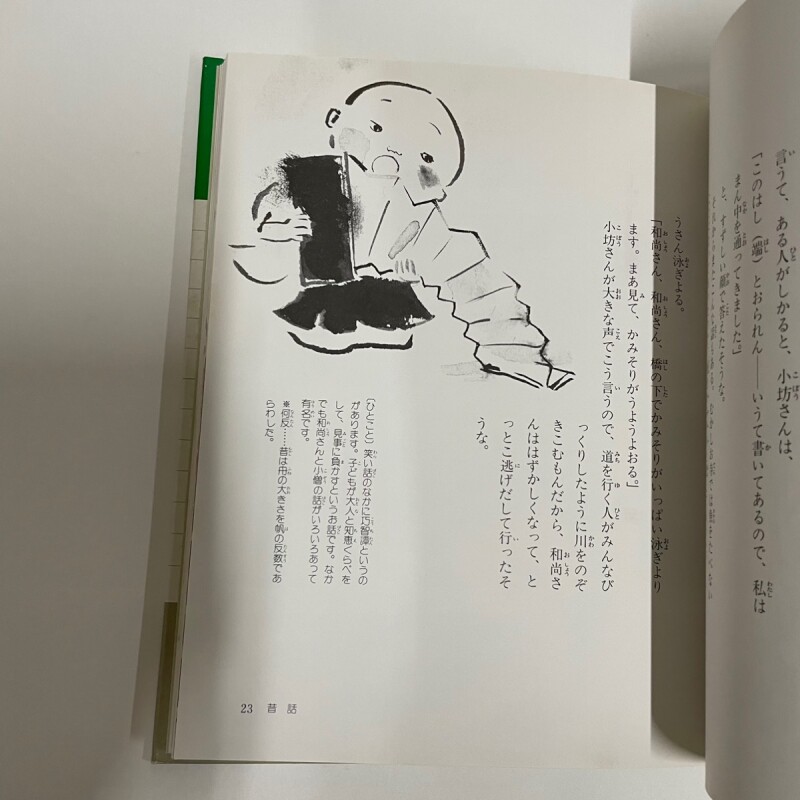 言うて、ある人がしかると、小坊さんは、
「このはし(端)とおられん——いうて書いてあるので、私は
まん中を通ってきました。」
と、すずしい顔で答えたそうな。
うさん泳ぎよる。
「和尚さん、和尚さん、橋の下でかみそりがいっぱい泳ぎより
ます。まあ見て、かみそりがうようよおる。」
小坊さんが大きな声でこう言うので、道を行く人がみんなび
っくりしたように川をのぞ
きこむもんだから、和尚さ
んははずかしくなって、と
っとこ逃げだして行ったそ
うな。
〔ひとこと〕 笑い話のなかに巧智譚というの
があります。子どもが大人と知恵くらべを
して、見事に負かすというお話です。なか
でも和尚さんと小僧の話がいろいろあって
有名です。
※何反……昔は舟の大きさを帆の反数であ
らわした。
23 昔話